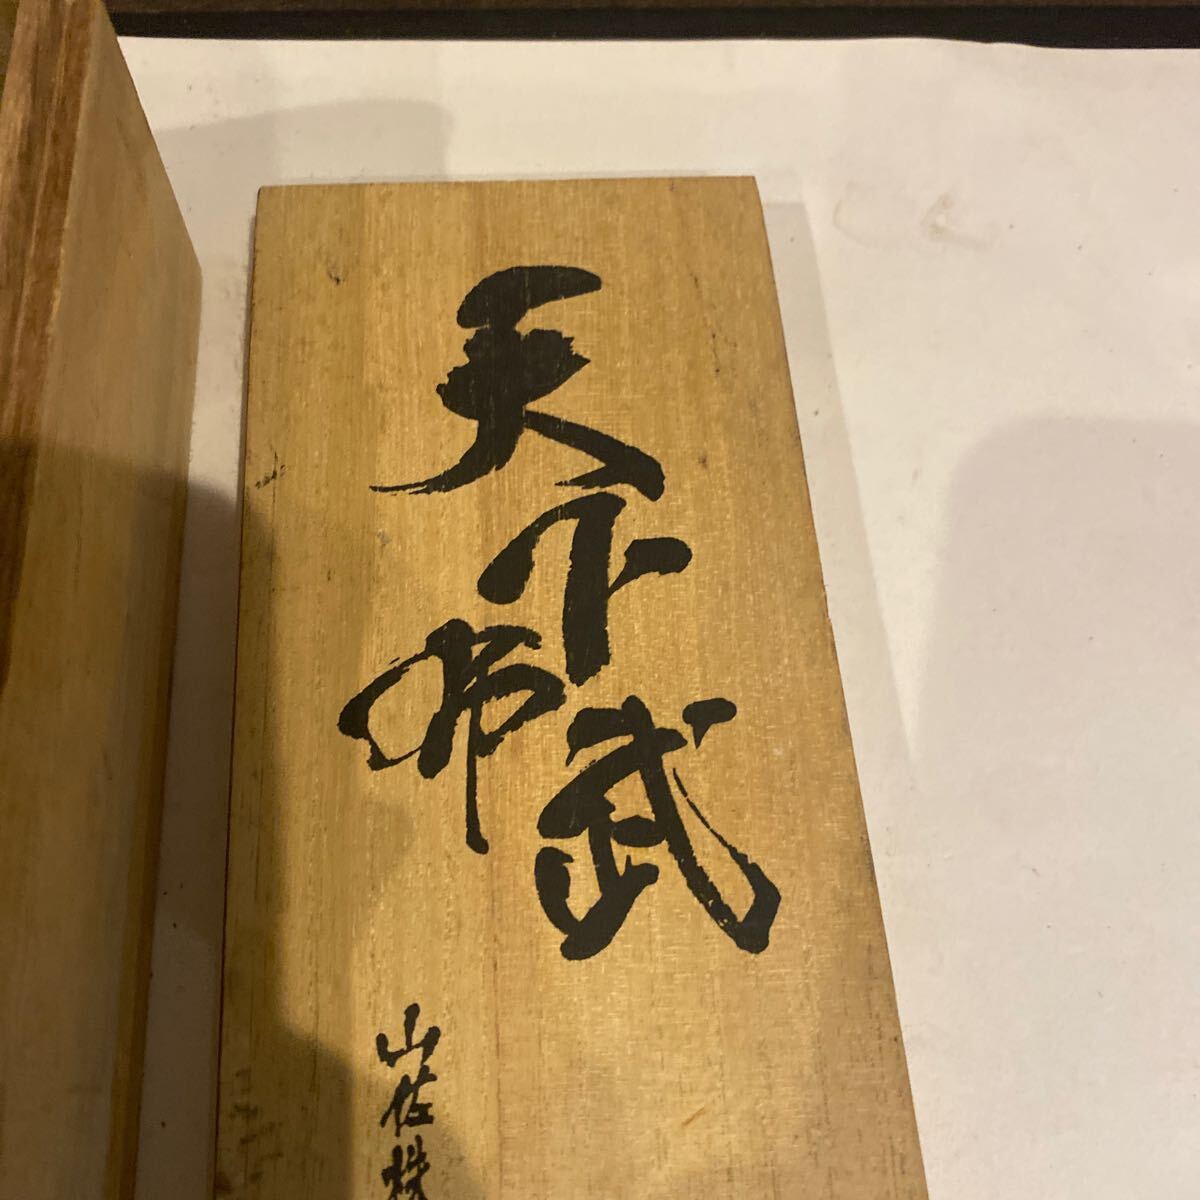 天下布武
山佐株